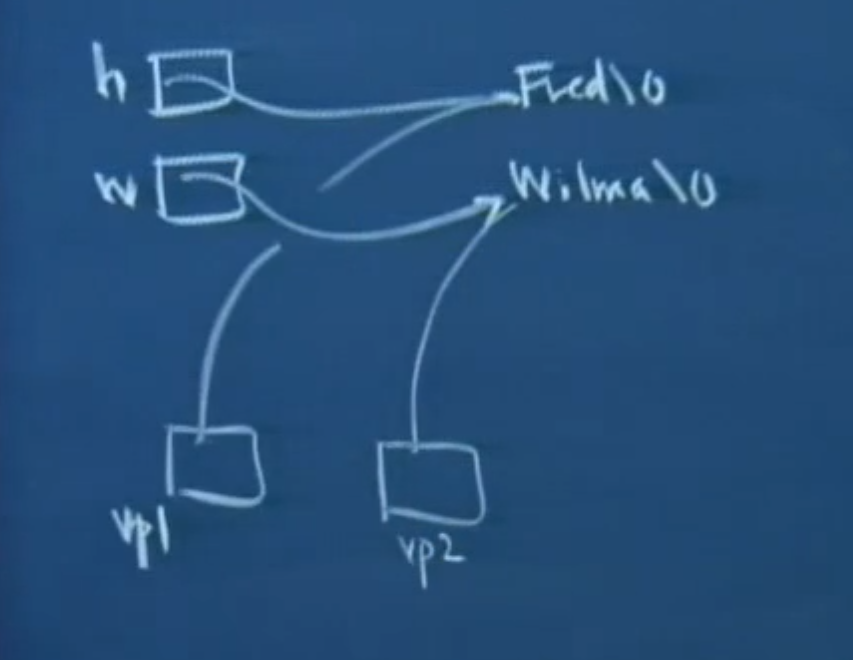 h Fred\0
w Wilma\0
vp1 vp2